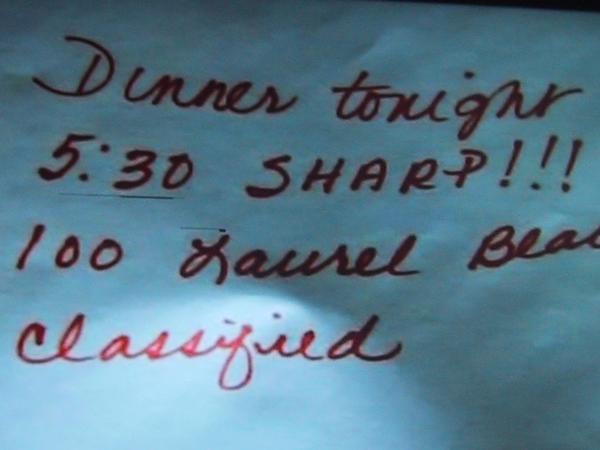 Dinner tonight
5:30 SHARP!!!
100 Laurel
Classified